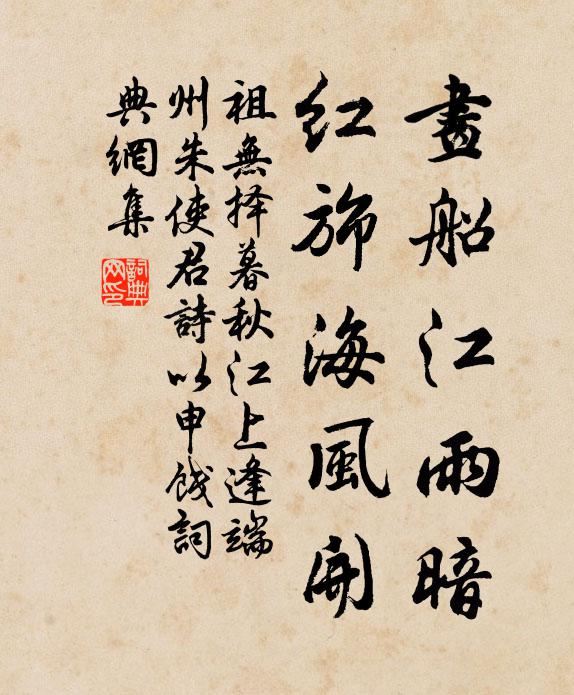 畫船江雨暗
紅斾海風開
祖無择暮秋江上逢端
州朱使君詩以申餞詞
典網集
詞典
网印